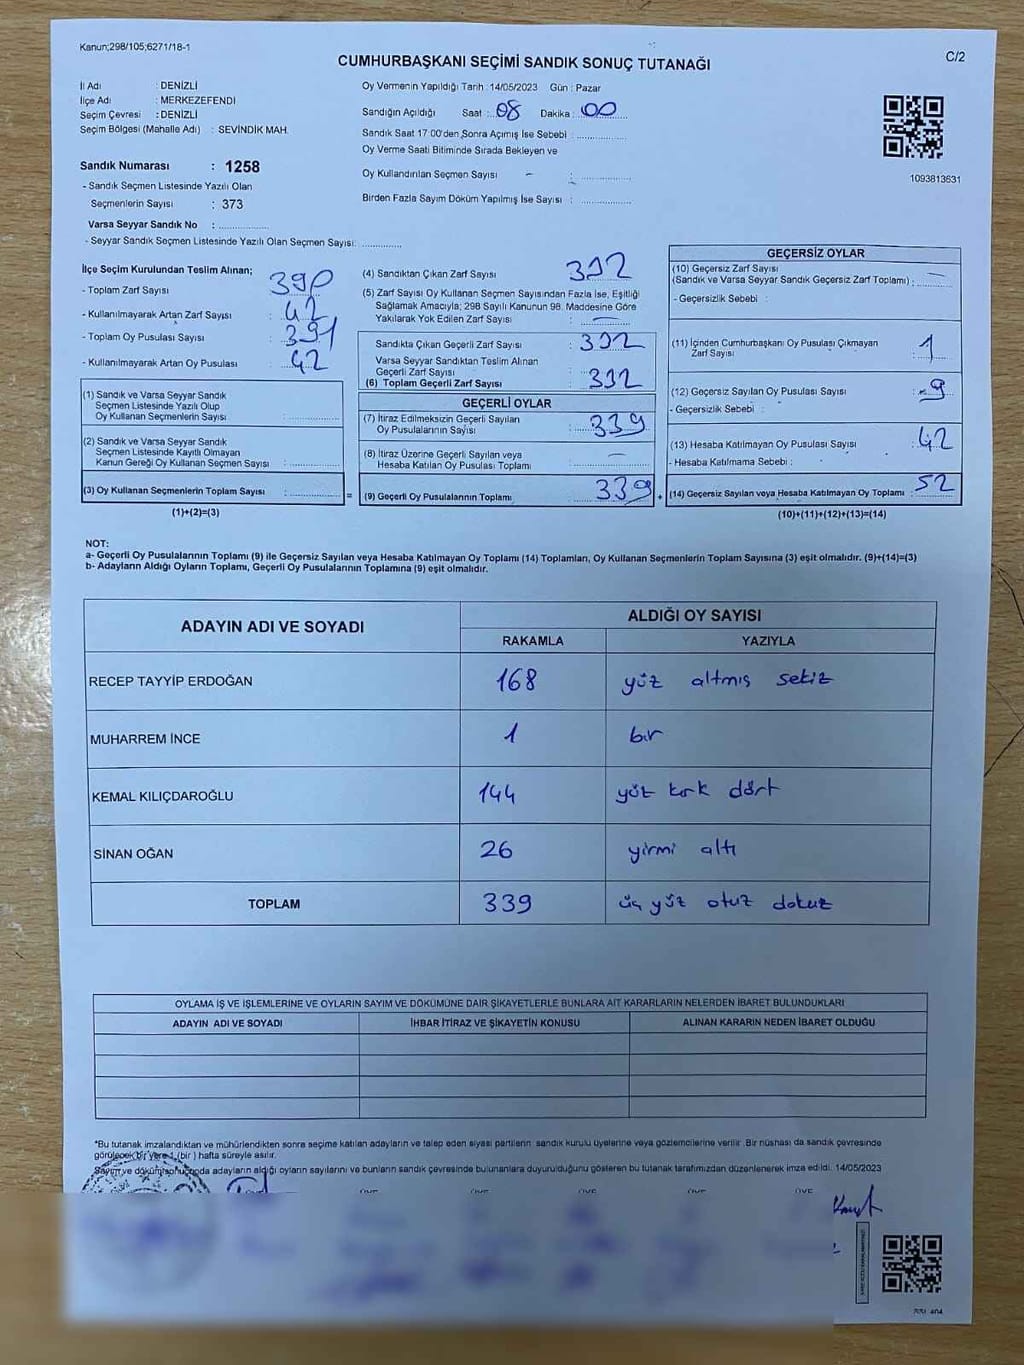 Kanun;298/105;6271/18-1
CUMHURBAŞKANI SEÇİMİ SANDIK SONUÇ TUTANAĞI
C/2
İl Adı : DENİZLİ
İlçe Adı : MERKEZEFENDİ
Seçim Çevresi : DENİZLİ
Seçim Bölgesi (Mahalle Adı) : SEVİNDİK MAH.
Sandık Numarası : 1258
- Sandık Seçmen Listesinde Yazılı Olan
Seçmenlerin Sayısı : 373
Varsa Seyyar Sandık No :
- Seyyar Sandık Seçmen Listesinde Yazılı Olan Seçmen Sayısı:
Oy Vermenin Yapıldığı Tarih : 14/05/2023 Gün : Pazar
Sandığın Açıldığı Saat : 08 Dakika : 00
Sandık Saat 17:00'den Sonra Açımış İse Sebebi :
Oy Verme Saati Bitiminde Sırada Bekleyen ve
Oy Kullandırılan Seçmen Sayısı - :
Birden Fazla Sayım Döküm Yapılmış İse Sayısı :
1093813631
İlçe Seçim Kurulundan Teslim Alınan;
- Toplam Zarf Sayısı : 390
- Kullanılmayarak Artan Zarf Sayısı : 42
- Toplam Oy Pusulası Sayısı : 391
- Kullanılmayarak Artan Oy Pusulası : 42
(1) Sandık ve Varsa Seyyar Sandık
Seçmen Listesinde Yazılı Olup
Oy Kullanan Seçmenlerin Sayısı :
(2) Sandık ve Varsa Seyyar Sandık
Seçmen Listesinde Kayıtlı Olmayan
Kanun Gereği Oy Kullanan Seçmen Sayısı :
(3) Oy Kullanan Seçmenlerin Toplam Sayısı :
(1)+(2)=(3)
(4) Sandıktan Çıkan Zarf Sayısı
(5) Zarf Sayısı Oy Kullanan Seçmen Sayısından Fazla İse, Eşitliği
Sağlamak Amacıyla; 298 Sayılı Kanunun 98. Maddesine Göre
Yakılarak Yok Edilen Zarf Sayısı :
Sandıkta Çıkan Geçerli Zarf Sayısı :
Varsa Seyyar Sandıktan Teslim Alınan
Geçerli Zarf Sayısı :
(6) Toplam Geçerli Zarf Sayısı
GEÇERLİ OYLAR
(7) İtiraz Edilmeksizin Geçerli Sayılan
Oy Pusulalarının Sayısı : 339
(8) İtiraz Üzerine Geçerli Sayılan veya
Hesaba Katılan Oy Pusulası Toplamı :
=
(9) Geçerli Oy Pusulalarının Toplamı : 339
+
GEÇERSİZ OYLAR
(10) Geçersiz Zarf Sayısı
(Sandık ve Varsa Seyyar Sandık Geçersiz Zarf Toplamı) :
- Geçersizlik Sebebi :
(11) İçinden Cumhurbaşkanı Oy Pusulası Çıkmayan
Zarf Sayısı : 1
(12) Geçersiz Sayılan Oy Pusulası Sayısı : 9
- Geçersizlik Sebebi :
(13) Hesaba Katılmayan Oy Pusulası Sayısı : 42
- Hesaba Katılmama Sebebi :
(14) Geçersiz Sayılan veya Hesaba Katılmayan Oy Toplamı : 52
(10)+(11)+(12)+(13)=(14)
NOT:
a- Geçerli Oy Pusulalarının Toplamı (9) ile Geçersiz Sayılan veya Hesaba Katılmayan Oy Toplamı (14) Toplamları, Oy Kullanan Seçmenlerin Toplam Sayısına (3) eşit olmalıdır. (9)+(14)=(3)
b- Adayların Aldığı Oyların Toplamı, Geçerli Oy Pusulalarının Toplamına (9) eşit olmalıdır.
ADAYIN ADI VE SOYADI
ALDIĞI OY SAYISI
RAKAMLA YAZIYLA
RECEP TAYYİP ERDOĞAN 168 yüz altmış sekiz
MUHARREM İNCE 1 bir
KEMAL KILIÇDAROĞLU 144 yüz kırk dört
SİNAN OĞAN 26 yirmi altı
TOPLAM 339 üç yüz otuz dokuz
OYLAMA İŞ VE İŞLEMLERİNE VE OYLARIN SAYIM VE DÖKÜMÜNE DAİR ŞİKAYETLERLE BUNLARA AİT KARARLARIN NELERDEN İBARET BULUNDUKLARI
ADAYIN ADI VE SOYADI İHBAR İTİRAZ VE ŞİKAYETİN KONUSU ALINAN KARARIN NEDEN İBARET OLDUĞU
*Bu tutanak imzalandıktan ve mühürlendikten sonra seçime katılan adayların ve talep eden siyasi partilerin sandık kurulu üyelerine veya gözlemcilerine verilir. Bir nüshası da sandık çevresinde
görülecek bir yere 1 (bir ) hafta süreyle asılır.
Sayım ve döküm sonucunda adayların aldığı oyların sayılarını ve bunların sandık çevresinde bulunanlara duyurulduğunu gösteren bu tutanak tarafımızdan düzenlenerek imza edildi. 14/05/2023